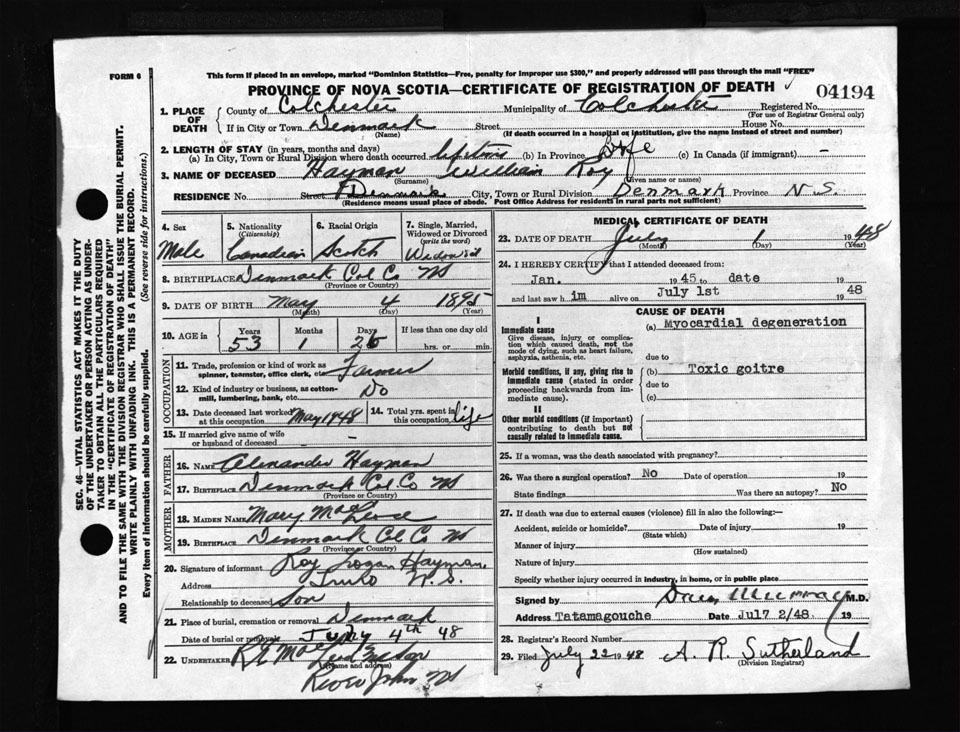 FORM 6
This form if placed in an envelope, marked "Dominion Statistics—Free, penalty for improper use $300," and properly addressed will pass through the mail "FREE"
PROVINCE OF NOVA SCOTIA—CERTIFICATE OF REGISTRATION OF DEATH
04194
1. PLACE OF DEATH
County of Colchester Municipality of Colchester Registered No.
(For use of Registrar General only)
If in City or Town Denmark Street House No.
(Name) (If death occurred in a hospital or institution, give the name instead of street and number)
2. LENGTH OF STAY (in years, months and days)
(a) In City, Town or Rural Division where death occurred lifetime (b) In Province Life (c) In Canada (if immigrant) -
3. NAME OF DECEASED Hayman William Roy
(Surname) (Given name or names)
RESIDENCE No. Street Denmark City, Town or Rural Division Denmark Province N.S.
(Residence means usual place of abode. Post Office Address for residents in rural parts not sufficient)
4. Sex Male
5. Nationality (Citizenship) Canadian
6. Racial Origin Scotch
7. Single, Married, Widowed or Divorced (write the word) Widowed
8. BIRTHPLACE Denmark Col Co NS
(Province or Country)
9. DATE OF BIRTH May 4 1895
(Month) (Day) (Year)
10. AGE in Years Months Days If less than one day old
53 1 26 hrs. or min.
OCCUPATION
11. Trade, profession or kind of work as spinner, teamster, office clerk, etc. Farmer
12. Kind of industry or business, as cotton-mill, lumbering, bank, etc. Do
13. Date deceased last worked at this occupation May 1948
14. Total yrs. spent in this occupation life
15. If married give name of wife or husband of deceased -
FATHER
16. NAME Alexander Hayman
17. BIRTHPLACE Denmark Col. Co NS
(Province or Country)
MOTHER
18. MAIDEN NAME Mary
19. BIRTHPLACE Denmark Col Co NS
(Province or Country)
20. Signature of informant Roy Logan Hayman
Address Truro N.S.
Relationship to deceased Son
21. Place of burial, cremation or removal Denmark
Date of burial or removal July 4th 48
22. UNDERTAKER
(Name and address)
River John NS
MEDICAL CERTIFICATE OF DEATH
23. DATE OF DEATH July 1 1948
(Month) (Day) (Year)
24. I HEREBY CERTIFY that I attended deceased from:
Jan. 1945 to date
and last saw him alive on July 1st 1948
CAUSE OF DEATH
I
Immediate cause
Give disease, injury or complication which caused death, not the mode of dying, such as heart failure, asphyxia, asthenia, etc.
(a) Myocardial degeneration
due to
Morbid conditions, if any, giving rise to immediate cause (stated in order proceeding backwards from immediate cause).
(b) Toxic goitre
due to
(c)
II
Other morbid conditions (if important) contributing to death but not causally related to immediate cause.
25. If a woman, was the death associated with pregnancy?
26. Was there a surgical operation? No Date of operation 19
State findings Was there an autopsy? No
27. If death was due to external causes (violence) fill in also the following:—
Accident, suicide or homicide? Date of injury 19
(State which)
Manner of injury
(How sustained)
Nature of injury
Specify whether injury occurred in industry, in home, or in public place
Signed by Dan Murray M.D.
Address Tatamagouche Date Jul7 2/48. 19
28. Registrar's Record Number
29. Filed July 22 1948 A. R. Sutherland
(Division Registrar)
SEC. 46—VITAL STATISTICS ACT MAKES IT THE DUTY
OF THE UNDERTAKER OR PERSON ACTING AS UNDER-
TAKER TO OBTAIN ALL THE PARTICULARS REQUIRED
IN THE "CERTIFICATE OF REGISTRATION OF DEATH"
AND TO FILE THE SAME WITH THE DIVISION REGISTRAR WHO SHALL ISSUE THE BURIAL PERMIT.
WRITE PLAINLY WITH UNFADING INK. THIS IS A PERMANENT RECORD.
Every item of information should be carefully supplied. (See reverse side for instructions.)